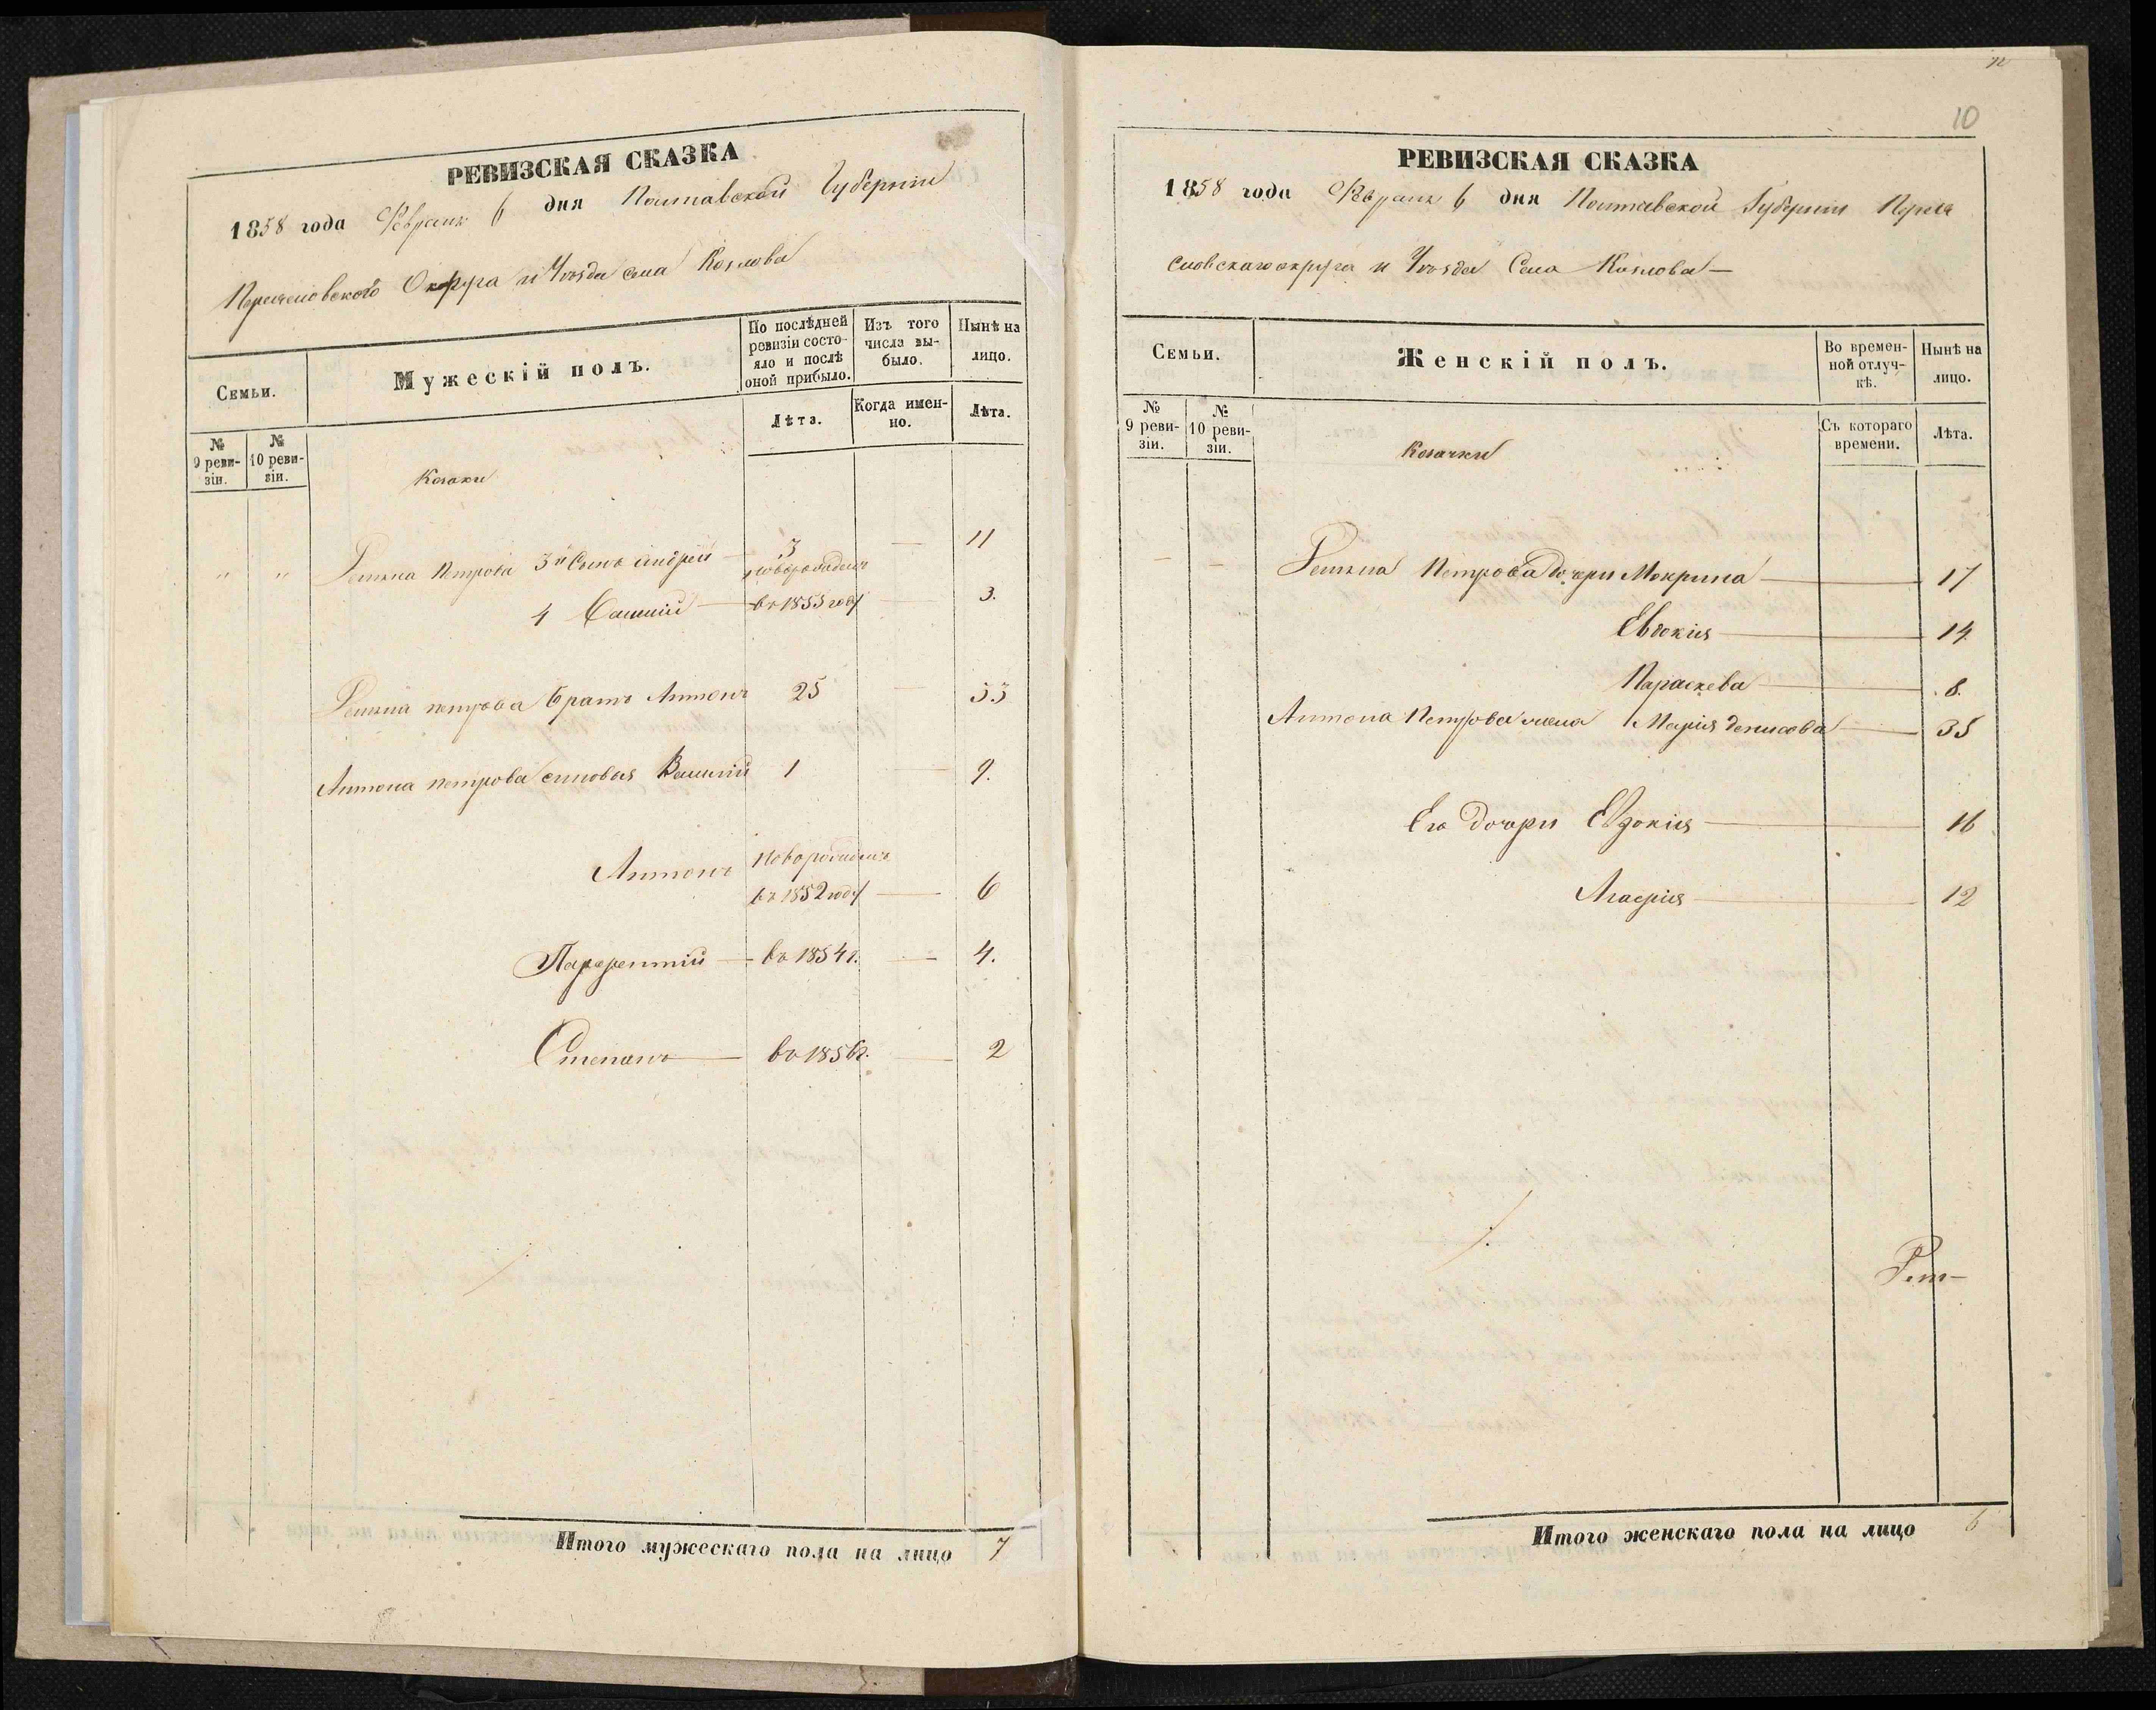 РЕВИЗСКАЯ СКАЗКА
1858 года Февраля 6 дня Полтавской Губернии
Переяславского Округа и Уѣзда села Козлова
Семьи.
Мужескій полъ.
По послѣдней ревизіи состо-
яло и послѣ
оной прибыло.
Изъ того
числа вы-
было.
Нынѣ на
лицо.
Лѣта.
Когда имен-
но.
Лѣта.
№
9 реви-
зіи.
№
10 реви-
зіи.
Козаки
" " Петрова 3й Сынъ Андрей — 3 — 11
новорожденъ
4 — въ 1855 году — 3.
петрова братъ Антонъ 25 — 35
Антона петрова сыновья Василій 1 — 9.
Антонъ новорожденъ
въ 1852 году — 6
въ 1854 г. — 4.
Степанъ — въ 1856 г. — 2
Итого мужескаго пола на лицо 7
10
РЕВИЗСКАЯ СКАЗКА
1858 года Февраля 6 дня Полтавской Губернии Перея
славскаго округа и Уѣзда Села Козлова —
Семьи.
Женскій полъ.
Во времен-
ной отлуч-
кѣ.
Нынѣ на
лицо.
№
9 реви-
зіи.
№
10 реви-
зіи.
Съ котораго
времени.
Лѣта.
Козачки
— — Петрова дочери Мокрина — 17
Евдокія — 14
Параскева — 8.
Антона Петрова жена Марія Денисова — 35
Его дочери Евдокія — 16
— 12
Итого женскаго пола на лицо 6